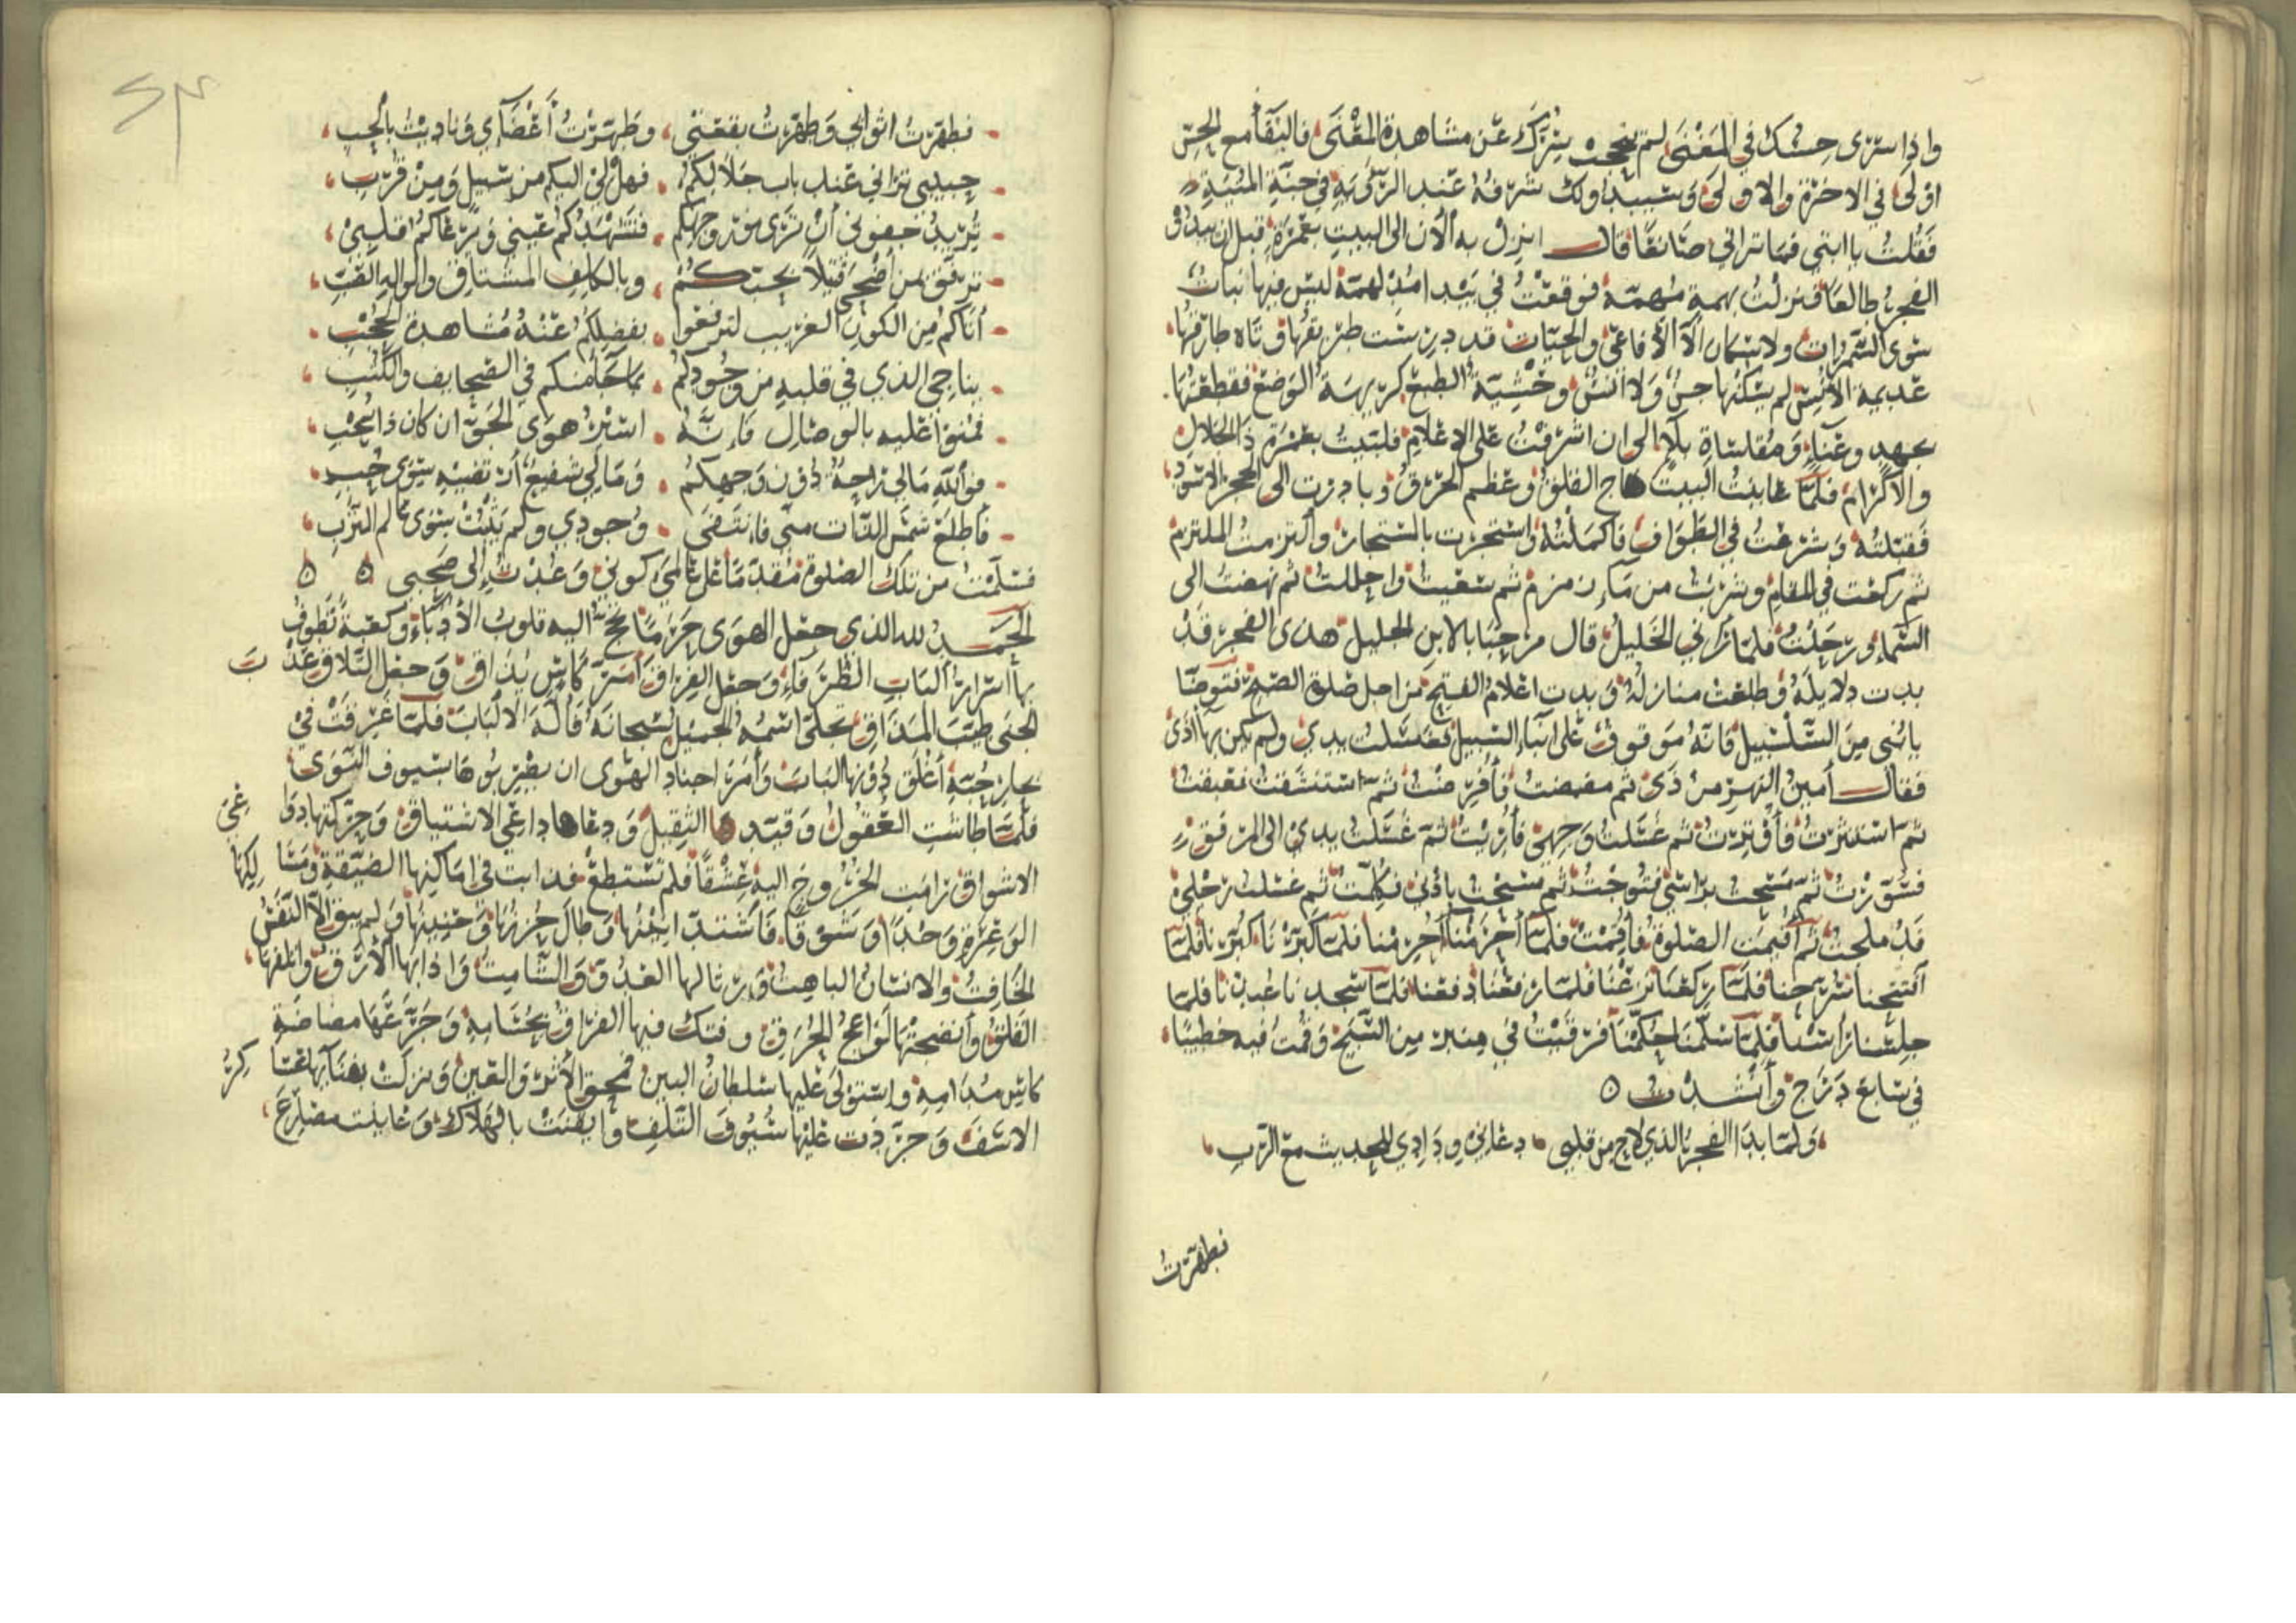 واذا سرى حسك في المغنى لم يحجب سرك عن مشاهدة المغنى فالبقا مع الحس
اولى في الاخرة والاولى وسيبدا ولك شرفه عند الرؤية في جنة المنية
فقلت يا ابتي فما تراني صانعا قال انزل به الان الى البيت بعمرة قبل ان
الفجر طالعا فنزلت بهمة مهمة فوقعت في بيدا مدلهمة ليس فيها نبات
سوى السمرات ولا الا الافاعي والحيات قد درست طريقها وتاه طارقها
عديمة الانيس لم يسكنها جن ولا انس وحشية الطبع كريهة الوضع فقطعتها
بجهد وعناء ومقاساة بلاء الى ان اشرفت على الاعلام فلبيت بعمرة ذا الجلال
والاكرام فلما عاينت البيت هاج القلق وعظم الحرق وبادرت الى الحجر الاسود
فقبلته وشرعت في الطواف فاكملته واستجرت بالمستجار والتزمت الملتزم
ثم ركعت في المقام وشربت من ماء زمزم ثم سعيت واحللت ثم نهضت الى
السماء ورحلت فلما رآني الخليل قال مرحبا بالابن الجليل هذى الفجر قد
بدت دلايله وطلعت منازله وبدت اعلام الفتح من اجل صلوة الصبح فتوضا
يا بني من السلسبيل فانه موقوف على ابناء السبيل فغسلت يدي ولم يكن بها اذى
فقال امين النهر من ذى ثم مضمضت فافرضت ثم استنشقت فعبقت
ثم استنثرت فاوترت ثم غسلت وجهي ثم غسلت يدي الى المرفق
فسورت ثم مسحت براسي فتوجت ثم مسحت باذني فكلمت ثم غسلت رجلي
ثم اقيمت الصلوة فاقمت فلما احرمنا احرمنا فلما كبرنا كبرنا فلما
افتتحنا شرحنا فلما ركعنا فلما رفعنا دفعنا فلما سجدنا عبدنا فلما
جلسنا فلما سلمنا حكمنا فرقيت في منبر من السبح وقمت فيه خطيبا
في سابع درج وانشدت ٥
ولما بدا الفجر الذي لاح من قلبي دعاني ودادي للحديث مع الرب
فطهرت
فطهرت اثوابي وطهرت بقعتي وطهرت اعضآي وناديت بالحب
حبيبي تراني عند باب جلالكم فهل لي اليكم من سبيل ومن قرب
تريد جفوني ان ترى نور وجهكم فتشهدكم عيني ويرعاكم قلبي
ترفق بمن اضحى قتيلا بحبكم وبالكلف المشتاق والواله الصب
اتاكم من الكون الغريب لترفعوا بفضلكم عنه مشاهدة الحجب
يناجي الذي في قلبه من وجودكم بما جا منكم في الصحايف والكتب
فمنوا عليه بالوصال فانه اسير هوى الحق ان كان ذا عجب
فوالله مالي راحة دون وجهكم ومالي شفيع ارتضيه سوى حبي
فاطلع شمس الذات مني فانتفى وجودي ولم يثبت سوى عالم الترب
فسلمت من تلك الصلوة مقدما على عالمي كوني وعدت الى صحبي ٥ ٥
الحمد لله الذي جعل الهوى حرما تحج اليه قلوب الادباء وكعبة تطوف
بها اسرار الباب الظرفاء وجعل الفراق امر كاس يذاق وجعل التلاق عذب
الجنى طيب المذاق تجلى اسمه الجميل سبحانه فاله الالباب فلما غرقت في
بحار حبه اغلق دونها الباب وامر اجناد الهوى ان يضربوها بسيوف النوى
فلما طاشت العقول وقيدها الثقيل ودعاها داعي الاشتياق وحركتها دواعي
الاشواق رامت الخروج اليه عشقا فلم تستطع فذابت في اماكنها الضيقة ومسالكها
الوعرة وجدا وشوقا فاشتد انينها وطال حزنها وحنينها ولم يبق الا النفس
الخافت والانسان الباهت ورثا لها العدو والشامت واذابها الارق واتلفها
القلق وانضجتها لواعج الحرق وفتك فيها الفراق بحسامه وجرعها مضاضة
كاس مدامه واستولى عليها سلطان البين فمحق الاثر والعين ونزلت بفنآيها عساكر
الاسف وجردت عليها سيوف التلف وايقنت بالهلاك وعاينت مصارع